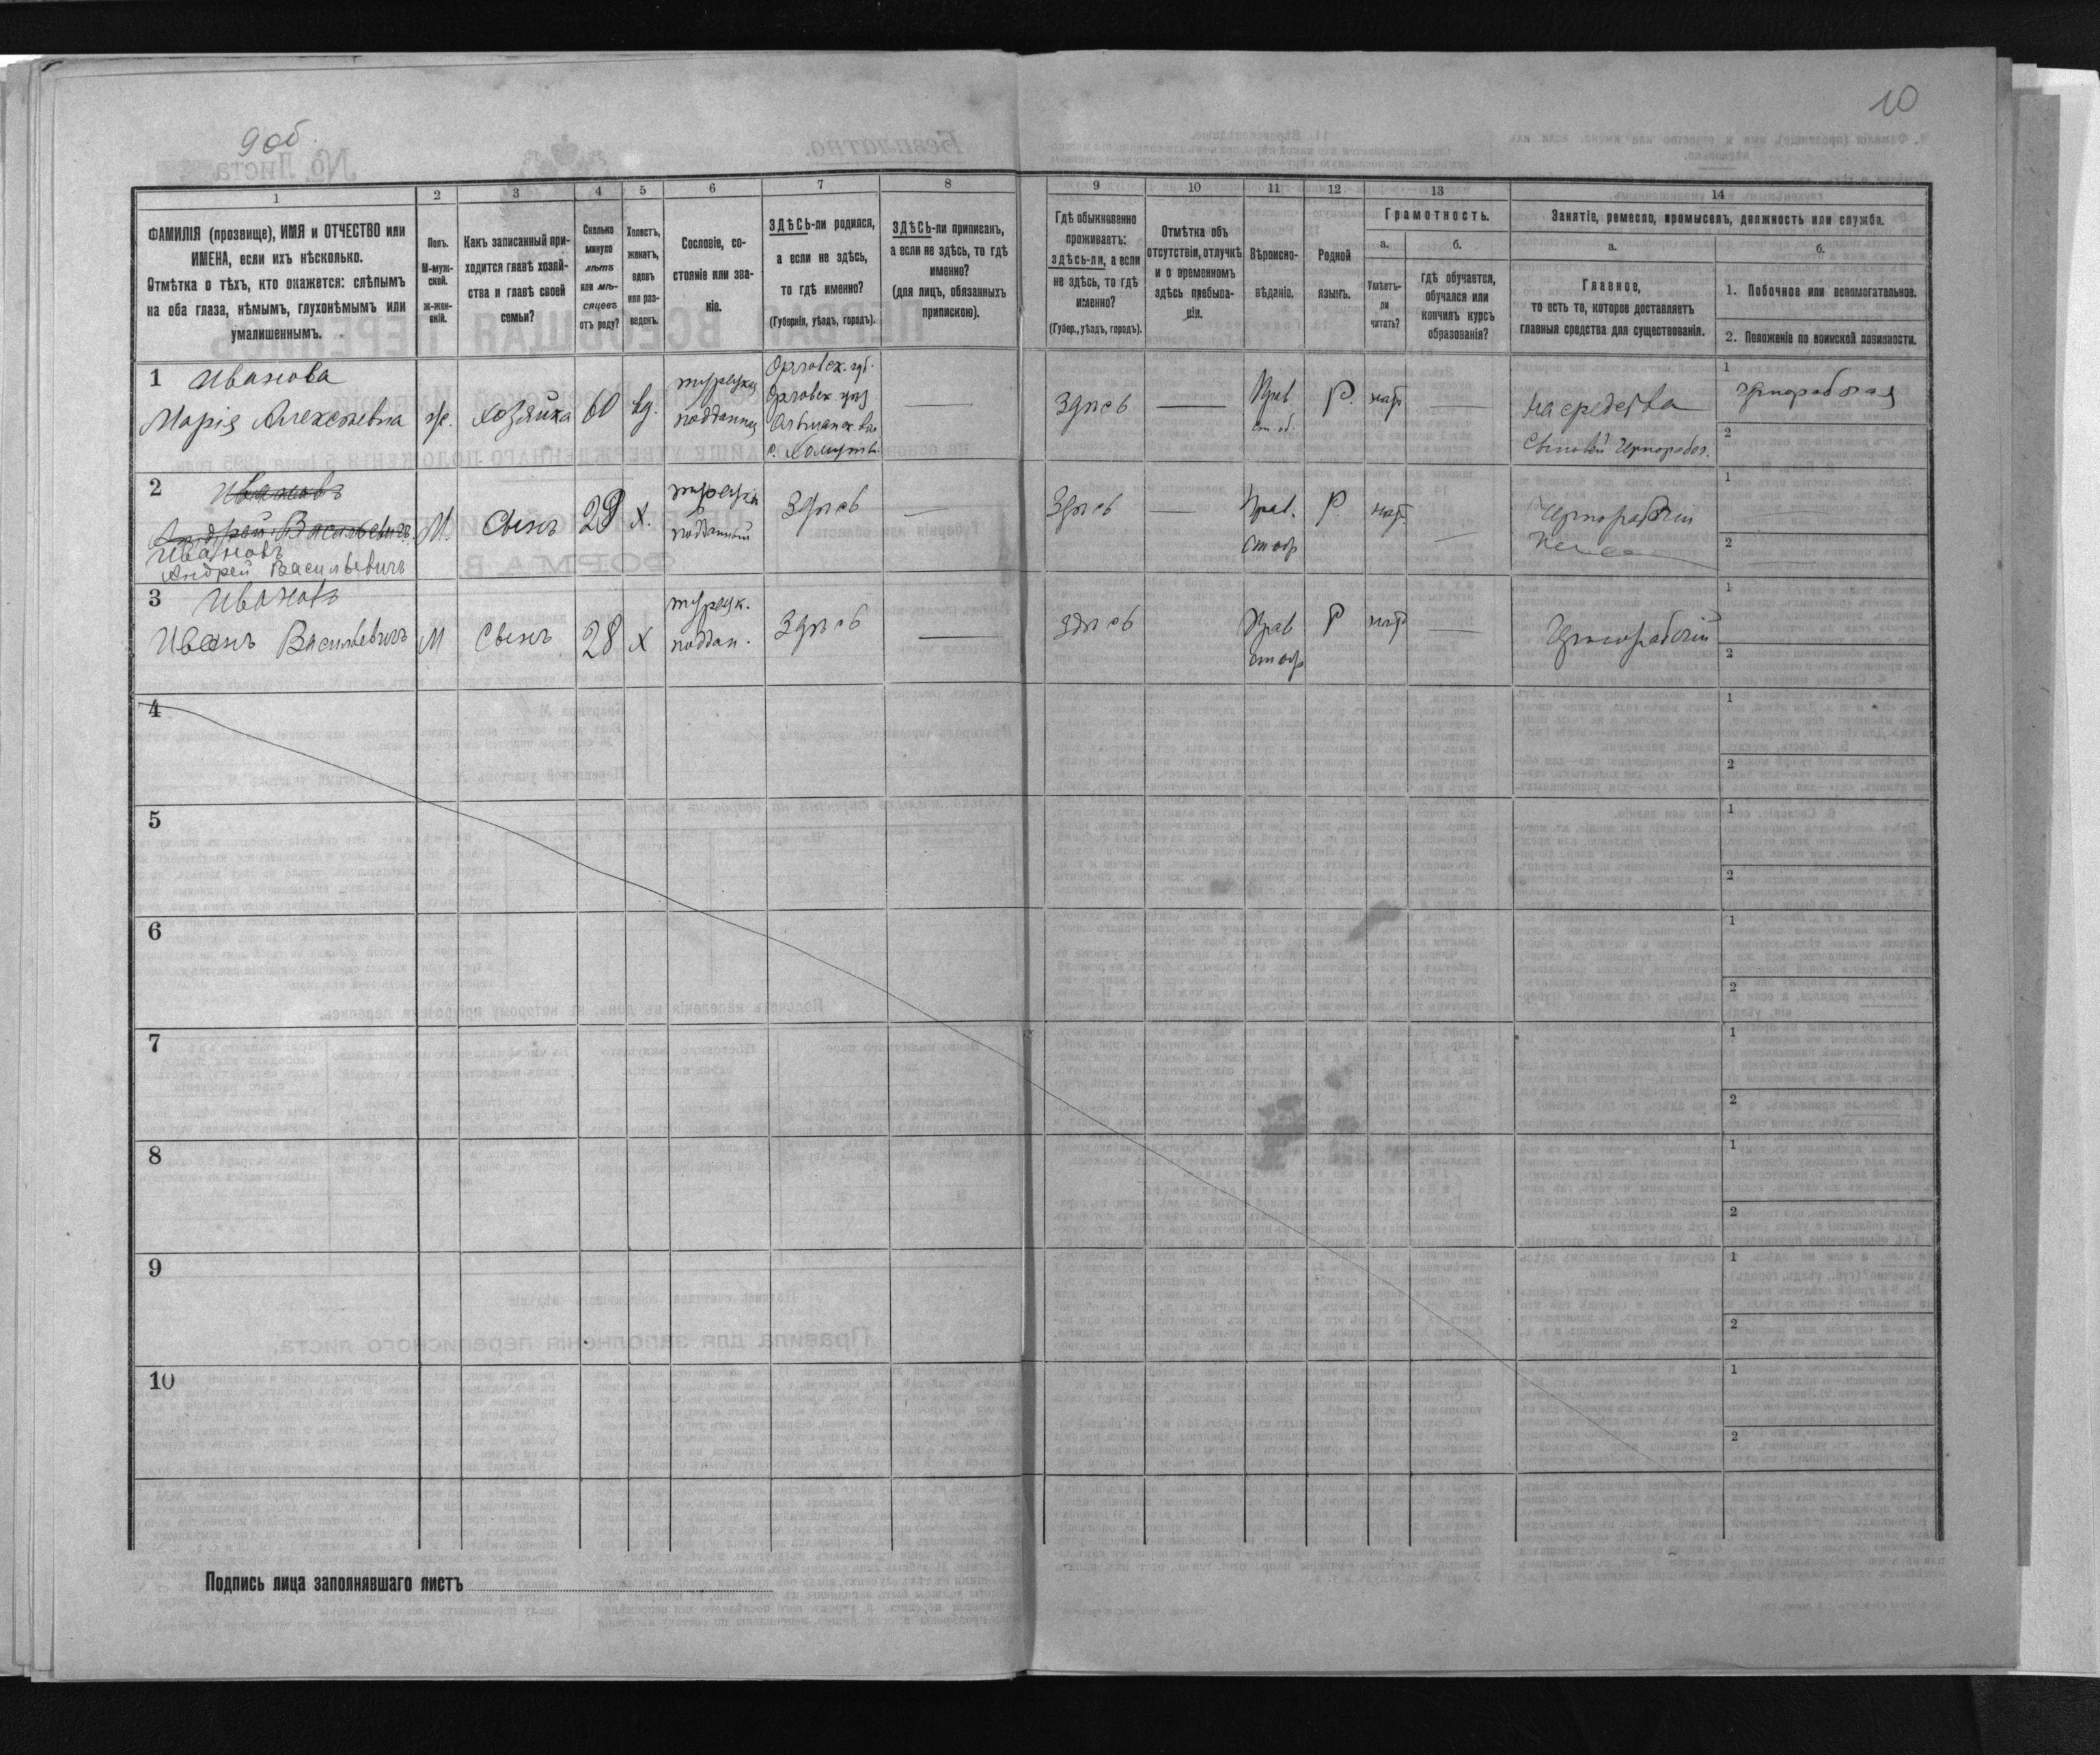 9 об.
10
1
ФАМИЛІЯ (прозвище), ИМЯ и ОТЧЕСТВО или
ИМЕНА, если ихъ нѣсколько.
Отмѣтка о тѣхъ, кто окажется: слѣпымъ
на оба глаза, нѣмымъ, глухонѣмымъ или
умалишеннымъ.
2
Полъ.
М-муж-
ской.
ж-жен-
скій.
3
Какъ записанный при-
ходится главѣ хозяй-
ства и главѣ своей
семьи?
4
Сколько
минуло
лѣтъ
или мѣ-
сяцевъ
отъ роду?
5
Холостъ,
женатъ,
вдовъ
или раз-
веденъ.
6
Сословіе, со-
стояніе или зва-
ніе.
7
ЗДѢСЬ-ли родился,
а если не здѣсь,
то гдѣ именно?
(Губернія, уѣздъ, городъ).
8
ЗДѢСЬ-ли приписанъ,
а если не здѣсь, то гдѣ
именно?
(для лицъ, обязанныхъ
припискою).
9
Гдѣ обыкновенно
проживаетъ:
здѣсь-ли, а если
не здѣсь, то гдѣ
именно?
(Губер., уѣздъ, городъ).
10
Отмѣтка объ
отсутствіи, отлучкѣ
и о временномъ
здѣсь пребыва-
ніи.
11
Вѣроиспо-
вѣданіе.
12
Родной
языкъ.
13
Грамотность.
а.
Умѣетъ-
ли
читать?
б.
Гдѣ обучается,
обучался или
кончилъ курсъ
образованія?
14
Занятіе, ремесло, промыселъ, должность или служба.
а.
Главное,
то есть то, которое доставляетъ
главныя средства для существованія.
б.
1. Побочное или вспомогательное.
2. Положеніе по воинской повинности.
1 Иванова
Марія Алексѣевна
ж.
хозяйка
60
вд.
турецкая
подданная
Орловск. губ.
Орловск. уѣз
—
Здѣсь
—
Прав
ст. об.
Р.
нѣт
—
на средства
сыновей чернорабоч.
1
чернорабочая
2
2 Ивановъ
Андрей Васильевичъ
Ивановъ
Андрей Васильевичъ
М.
Сынъ
29
х.
турецкій
подданный
Здѣсь
—
Здѣсь
—
Прав.
ст обр
Р
нѣт.
—
Чернорабочій
1
2
3 Ивановъ
Иванъ Васильевичъ
М
Сынъ
28
х
турецк.
поддан.
Здѣсь
—
здѣсь
Прав
ст обр
Р
нѣт
—
Чернорабочій
1
2
4
1
2
5
1
2
6
1
2
7
1
2
8
1
2
9
1
2
10
1
2
Подпись лица заполнявшаго листъ